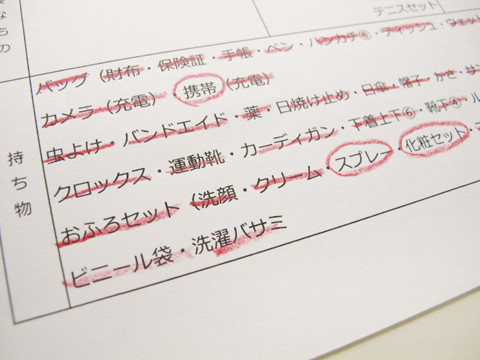 テニスセット
持ち物
バッグ（財布・保険証・手帳・ペン・ハンカチ⑥・ティッシュ・ウェット
カメラ（充電） 携帯（充電）
虫よけ・バンドエイド・薬・日焼け止め・日傘・帽子・かさ・サン
クロックス・運動靴・カーディガン・下着上下⑥・靴下④・ル
おふろセット（洗顔・クリーム・スプレー・化粧セット・
ビニール袋・洗濯バサミ